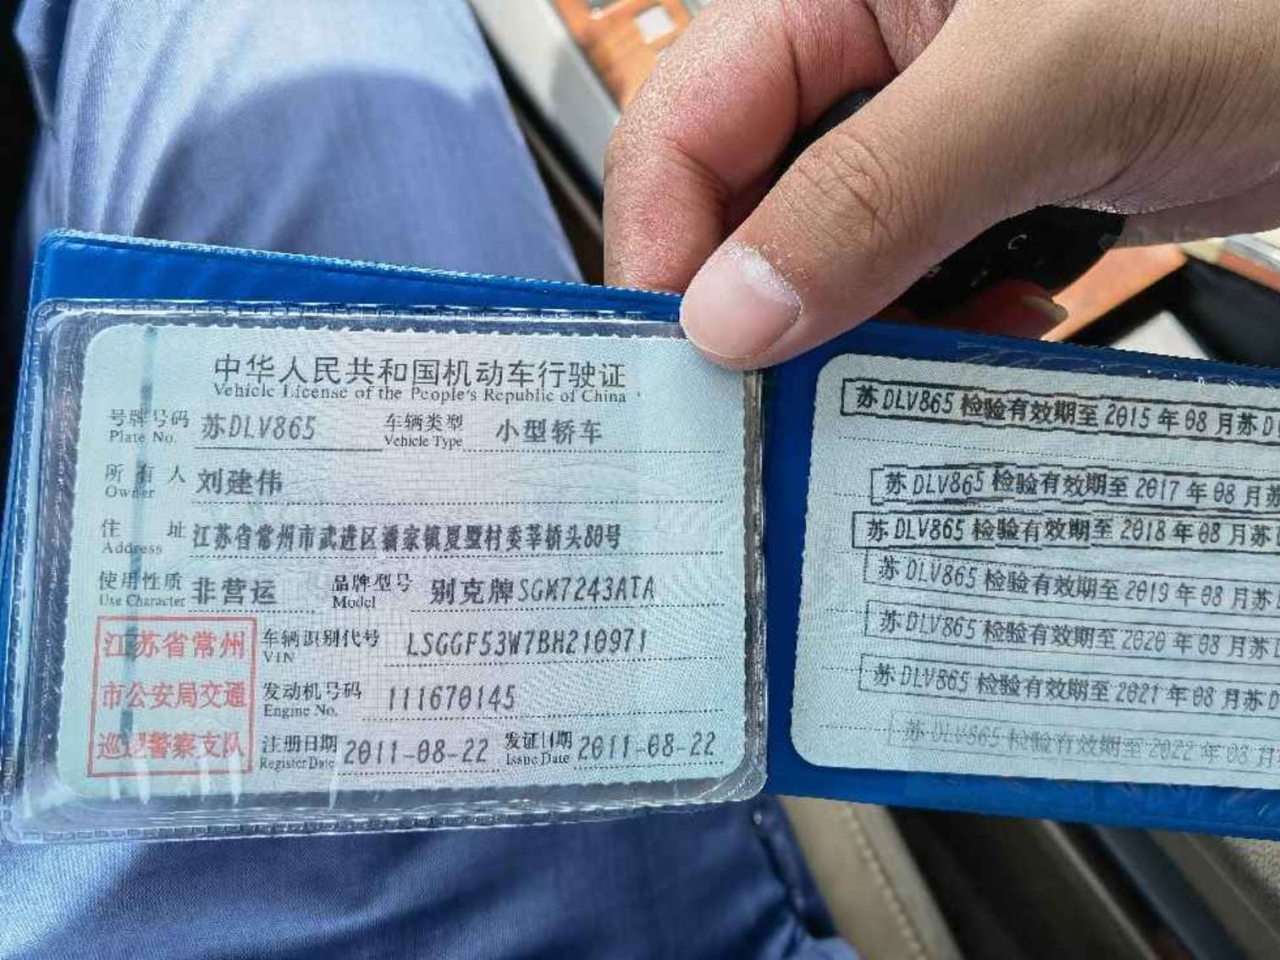 中华人民共和国机动车行驶证
Vehicle License of the People's Republic of China
号牌号码 苏DLV865 车辆类型 小型轿车
Plate No. Vehicle Type
所有人 刘建伟
Owner
住址 江苏省常州市武进区潘家镇夏墅村委莘桥头80号
Address
使用性质 非营运 品牌型号 别克牌SGM7243ATA
Use Character Model
江苏省常州
市公安局交通
巡逻警察支队
车辆识别代号 LSGGF53W7BH210971
VIN
发动机号码 111670145
Engine No.
注册日期 2011-08-22 发证日期 2011-08-22
Register Date Issue Date
苏DLV865 检验有效期至 2015年08月苏D
苏DLV865 检验有效期至 2017年08月
苏DLV865 检验有效期至 2018年08月苏
苏DLV865 检验有效期至 2019年08月苏
苏DLV865 检验有效期至 2020年08月苏
苏DLV865 检验有效期至 2021年08月苏D
苏DLV865 检验有效期至 2022年08月
C